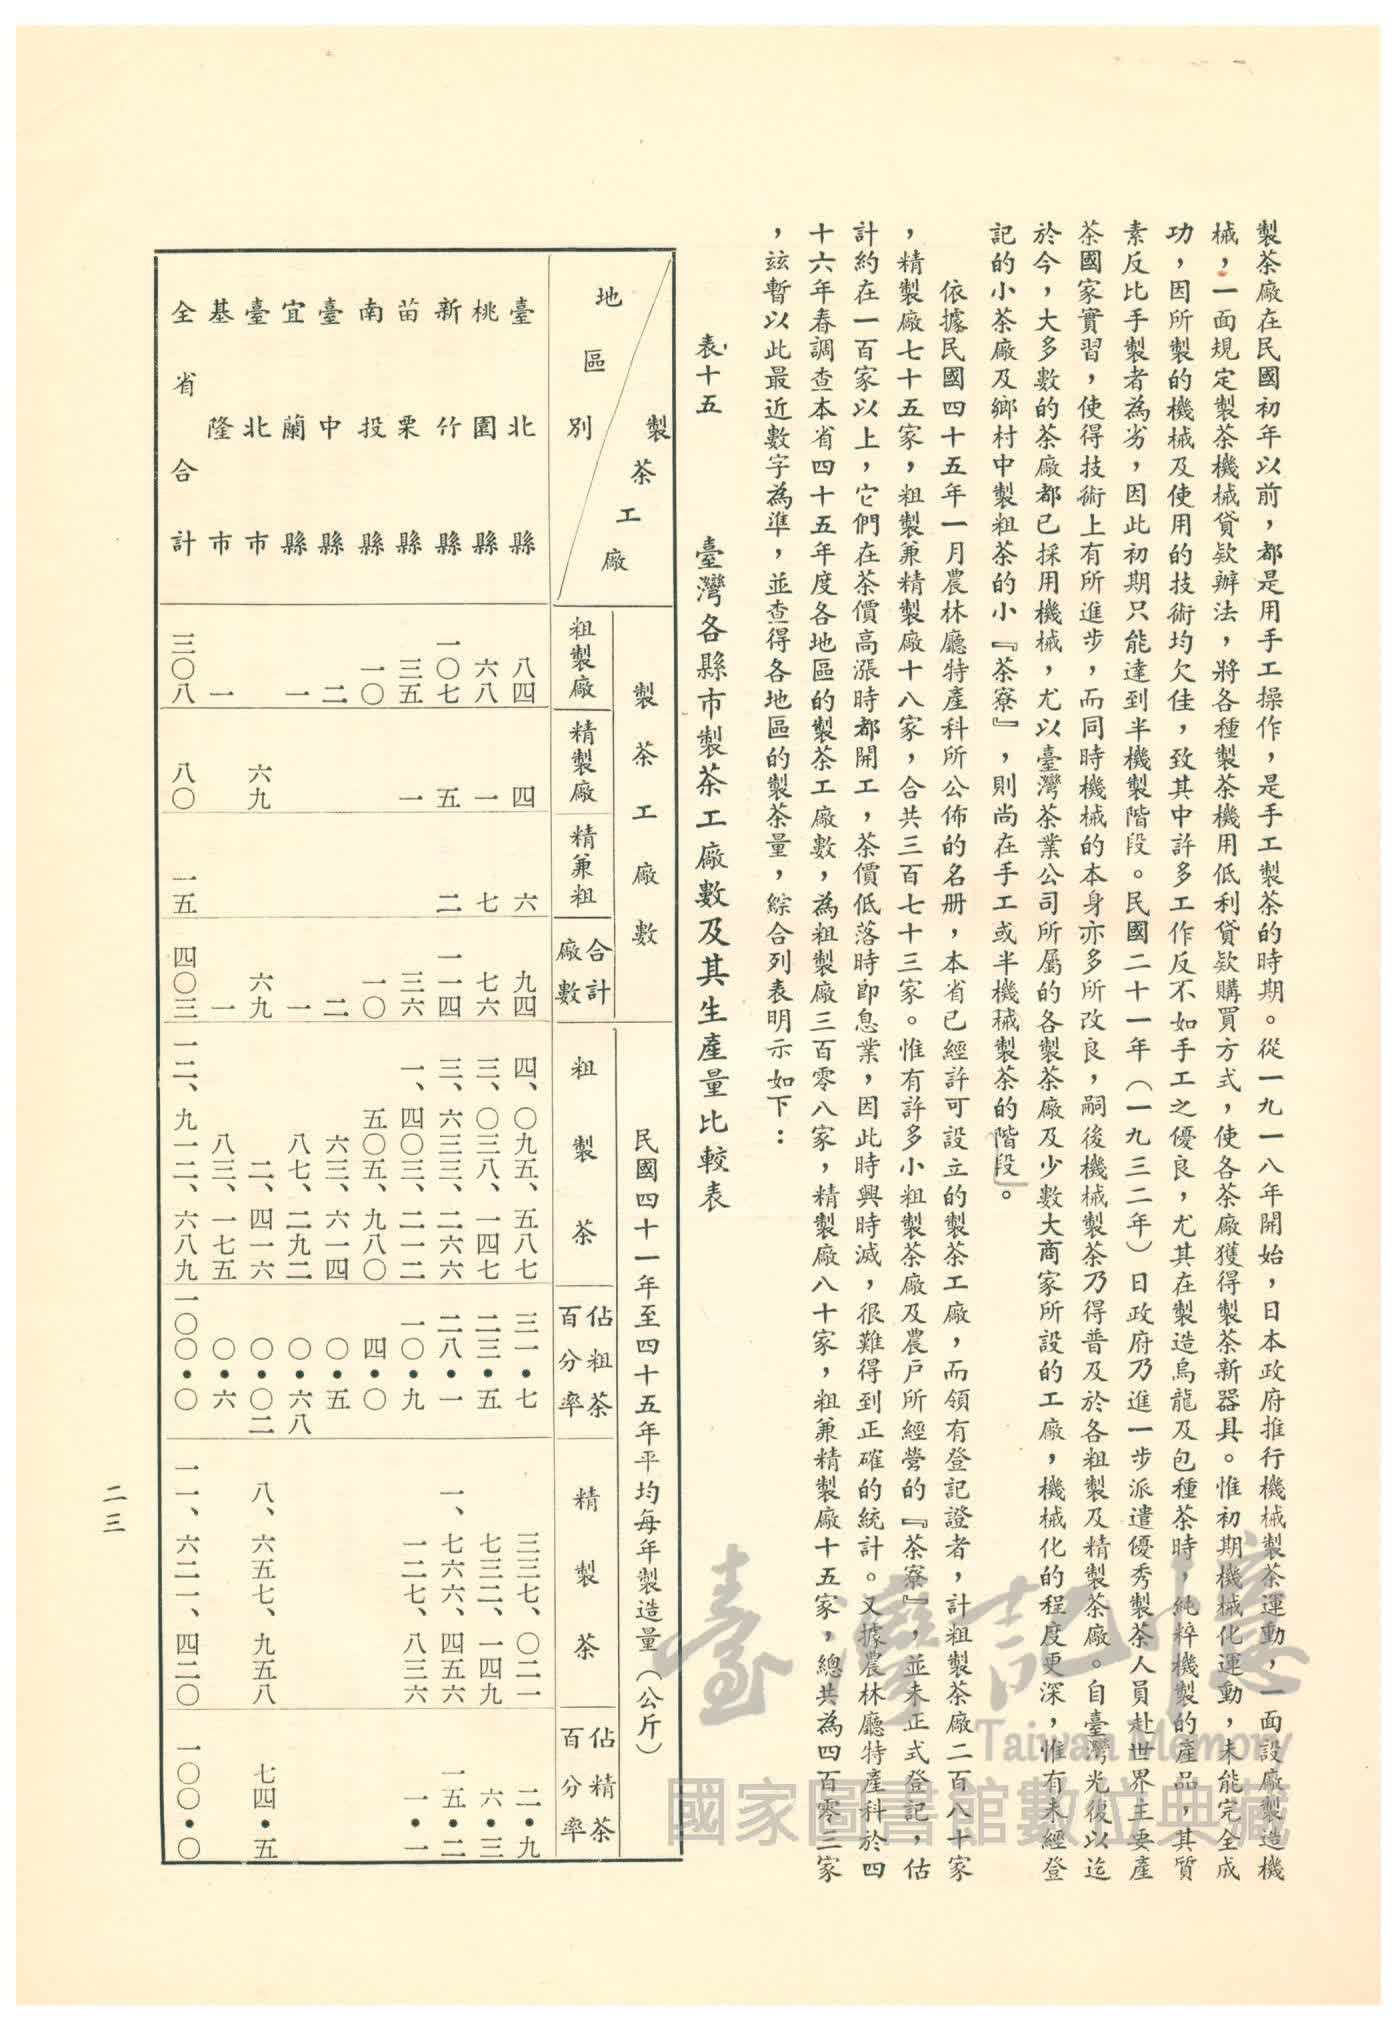 製茶廠在民國初年以前，都是用手工操作，是手工製茶的時期。從一九一八年開始，日本政府推行機械製茶運動，一面設廠製造機
械，一面規定製茶機械貸欵辦法，將各種製茶機用低利貸欵購買方式，使各茶廠獲得製茶新器具。惟初期機械化運動，未能完全成
功，因所製的機械及使用的技術均欠佳，致其中許多工作反不如手工之優良，尤其在製造烏龍及包種茶時，純粹機製的產品，其質
素反比手製者為劣，因此初期只能達到半機製階段。民國二十一年（一九三二年）日政府乃進一步派遣優秀製茶人員赴世界主要產
茶國家實習，使得技術上有所進步，而同時機械的本身亦多所改良，嗣後機械製茶乃得普及於各粗製及精製茶廠。自臺灣光復以迄
於今，大多數的茶廠都已採用機械，尤以臺灣茶業公司所屬的各製茶廠及少數大商家所設的工廠，機械化的程度更深，惟有未經登
記的小茶廠及鄉村中製粗茶的小『茶寮』，則尚在手工或半機械製茶的階段。
依據民國四十五年一月農林廳特產科所公佈的名冊，本省已經許可設立的製茶工廠，而領有登記證者，計粗製茶廠二百八十家
，精製廠七十五家，粗製兼精製廠十八家，合共三百七十三家。惟有許多小粗製茶廠及農戶所經營的『茶寮』，並未正式登記，估
計約在一百家以上，它們在茶價高漲時都開工，茶價低落時即息業，因此時興時滅，很難得到正確的統計。又據農林廳特產科於四
十六年春調查本省四十五年度各地區的製茶工廠數，為粗製廠三百零八家，精製廠八十家，粗兼精製廠十五家，總共為四百零三家
，茲暫以此最近數字為準，並查得各地區的製茶量，綜合列表明示如下：
表十五　臺灣各縣市製茶工廠數及其生產量比較表
製茶工廠
地區別
製茶工廠數　民國四十一年至四十五年平均每年製造量（公斤）
粗製廠　精製廠　精兼粗　合計廠數　粗製茶　佔粗茶百分率　精製茶　佔精茶百分率
臺北縣　八四　四　六　九四　四、〇九五、五八七　三一・七　三三七、〇二一　二・九
桃園縣　六八　一　七　七六　三、〇三八、一四七　二三・五　七三二、一四九　六・三
新竹縣　一〇七　五　二　一一四　三、六三三、二六六　二八・一　一、七六六、四五六　一五・二
苗栗縣　三五　一　三六　一、四〇三、二一二　一〇・九　一二七、八三六　一・一
南投縣　一〇　一〇　五〇五、九八〇　四・〇
臺中縣　二　二　六三、六一四　〇・五
宜蘭縣　一　一　八七、二九二　〇・六八
臺北市　六九　六九　二、四一六　〇・〇二　八、六五七、九五八　七四・五
基隆市　一　一　八三、一七五　〇・六
全省合計　三〇八　八〇　一五　四〇三　一二、九一二、六八九　一〇〇・〇　一一、六二一、四二〇　一〇〇・〇
二三
臺灣記憶
Taiwan Memory
國家圖書館數位典藏